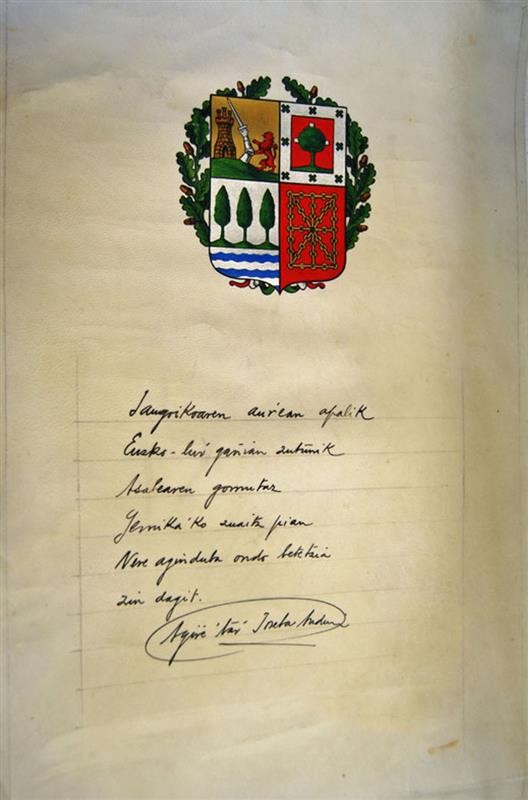 Jaungoikoaren auŕean apalik
Eusko-luŕ gañian zutunik
Asabearen gomutaz
Gernika'ko zuaitz pian
Nere aginduba ondo betetzia
zin dagit.
Agiŕe'taŕ Joseba Andoni